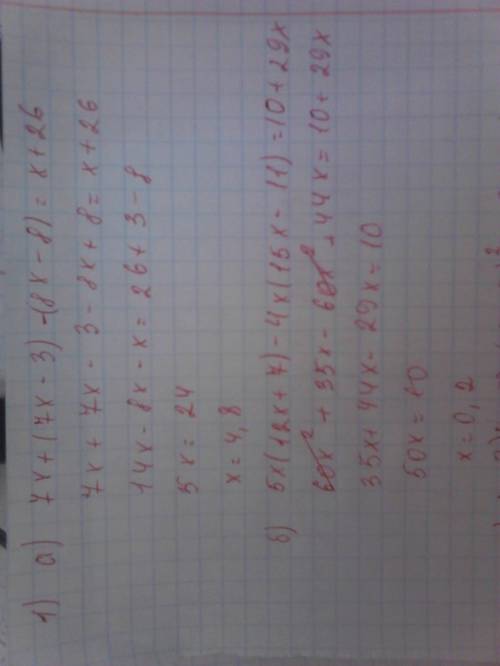 1) а) 7x + (7x - 3) - (8x - 8) = x + 26
7x + 7x - 3 - 8x + 8 = x + 26
14x - 8x - x = 26 + 3 - 8
5x = 24
x = 4,8
б) 5x(12x + 7) - 4x(15x - 11) = 10 + 29x
60x² + 35x - 60x² + 44x = 10 + 29x
35x + 44x - 29x = 10
50x = 10
x = 0,2